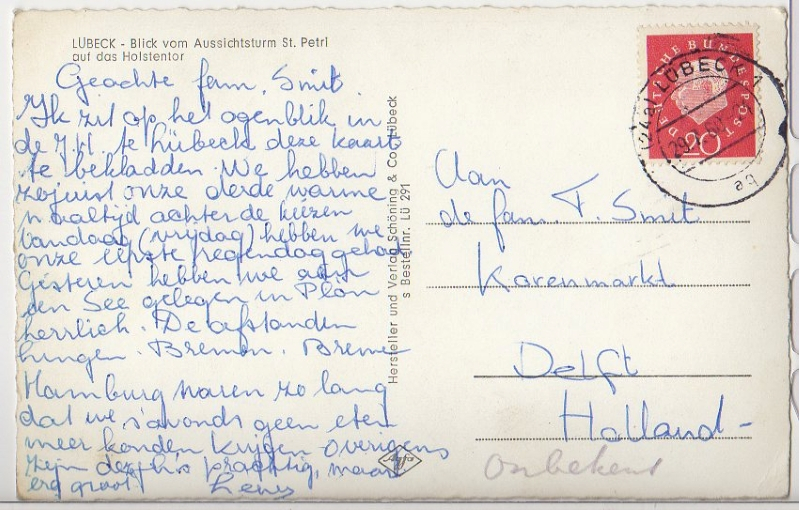 LÜBECK - Blick vom Aussichtsturm St. Petri
auf das Holstentor
Geachte fam. Smit.
Ik zit op het ogenblik in
de J.H. te Lübeck deze kaart
te bekladden. We hebben
zojuist onze derde warme
maaltijd achter de kiezen
Vandaag (vrijdag) hebben we
onze eerste regendag gehad
Gisteren hebben we aan
den See gelegen in Plön
herrlich. De afstanden
Bremen. Bremen
Hamburg waren zo lang
dat we 's avonds geen eten
meer konden krijgen overigens
zijn deze prachtig, maar
erg groot!
Hersteller und Verlag Schöning & Co., Lübeck
s Bestellnr. Lü 291
Agfa
DEUTSCHE BUNDESPOST
20
LÜBECK
Aan
de fam. F. Smit
Korenmarkt
Delft
Holland -
Onbekend